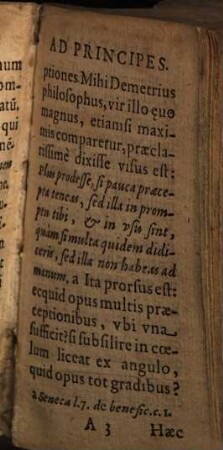 num
om-
atũ,
qui
mo
né-
AD PRINCIPES.
ptiones. Mihi Demetrius
philosophus, vir illo quo
magnus, etiamsi maxi-
mis comparetur, præcla-
tissimè dixisse visus est:
Plus prodesse, si pauca præce-
pta teneas, sed illa in prom-
ptu tibi, & in vsu sint,
quàm si multa quidem didi-
ceris, sed illa non habeas ad
manum, a Ita prorsus est:
ecquid opus multis præ-
ceptionibus, vbi vna
sufficit? si subsilire in cœ-
lum liceat ex angulo,
quid opus tot gradibus?
a Seneca l.7. de benefic.c.1.
A 3 Hæc